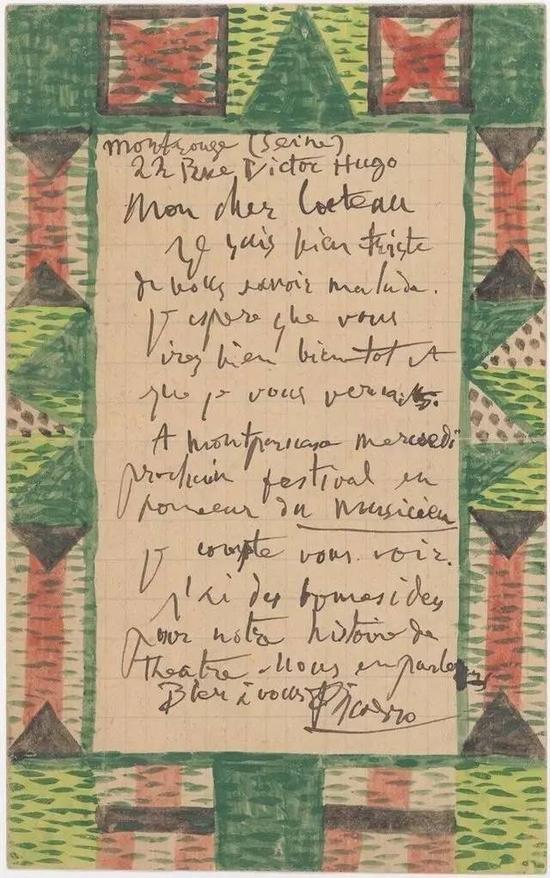 Montrouge (Seine)
22 Rue Victor Hugo
Mon cher Cocteau
Je suis bien triste
de vous savoir malade.
J espere que vous
irez bien bientot et
que je vous verrai.
A Montparnasse mercredi
prochain festival en
honneur du Musicien
je compte vous voir.
J'ai des bonnes idees
pour notre histoire de
theatre. Nous en parlerons
Bien à vous Picasso